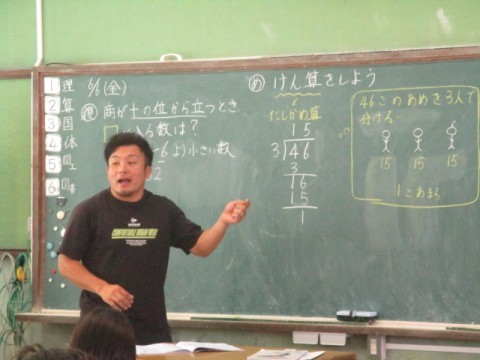 1 理
2 算
3 国
4 体
5 図工
6
6/6(金)
商が十の位から立つとき、
□に入る数は?
6より小さい数
2
め けん算をしよう
たしかめ算
15
3)46
3
16
15
1
46このあめを3人で
分けん
15 15 15
1こあまる